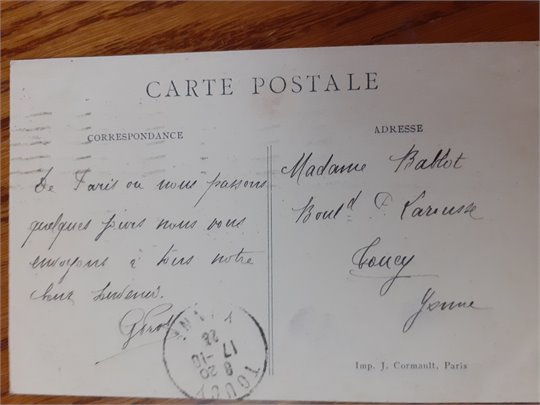 CARTE POSTALE
CORRESPONDANCE
ADRESSE
De Paris ou nous passons
quelques jours nous vous
envoyons à tous notre
Madame Ballot
Boul.d P. Larousse
Toucy
Yonne
TOUCY
YONNE
8 20
17 -10
22
Imp. J. Cormault, Paris